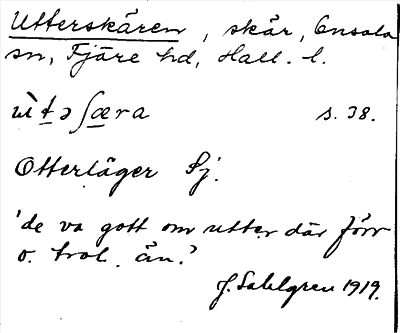 Utterskären, skär, Onsala
sn, Fjäre hd, Hall. l.
s. 38.
Otterläger Sj.
'de va gott om utter där förr
o. trol. än.'
J. Sahlgren 1919.